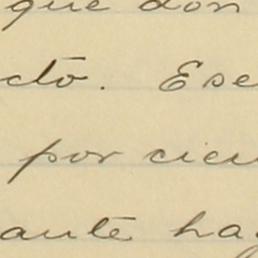 que don
cto. Ese
por cien
ante hay